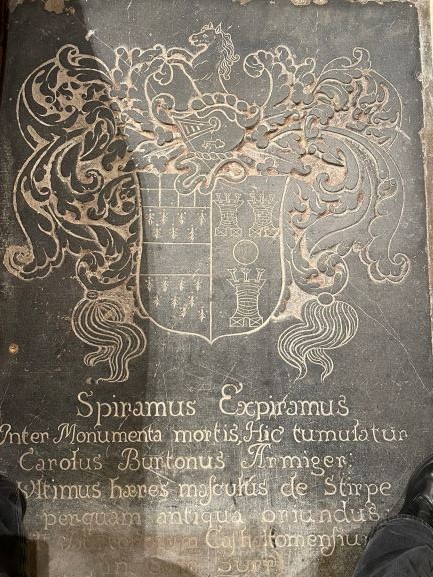 Spiramus Expiramus
Inter Monumenta mortis, Hic tumulatur
Carolus Burtonus Armiger:
Ultimus hæres masculus de Stirpe
perquam antiqua oriundus:
Cashaltomensium
in Surri